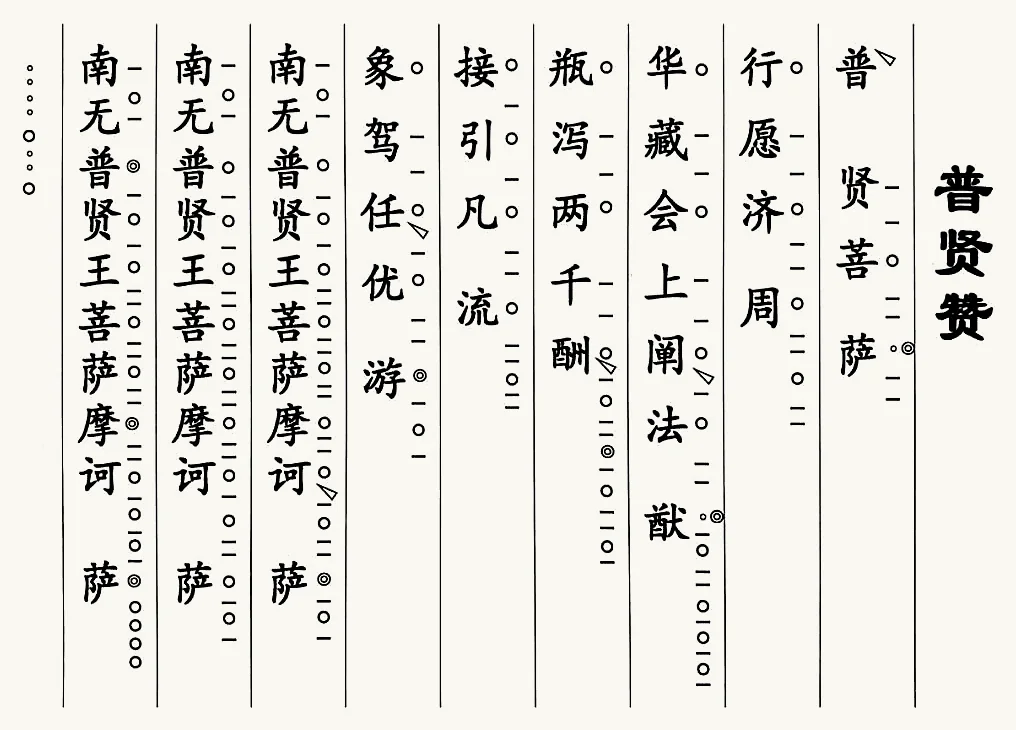 普贤赞
普贤菩萨
行愿济周
华藏会上阐法猷
瓶泻两千酬
接引凡流
象驾任优游
南无普贤王菩萨摩诃萨
南无普贤王菩萨摩诃萨
南无普贤王菩萨摩诃萨